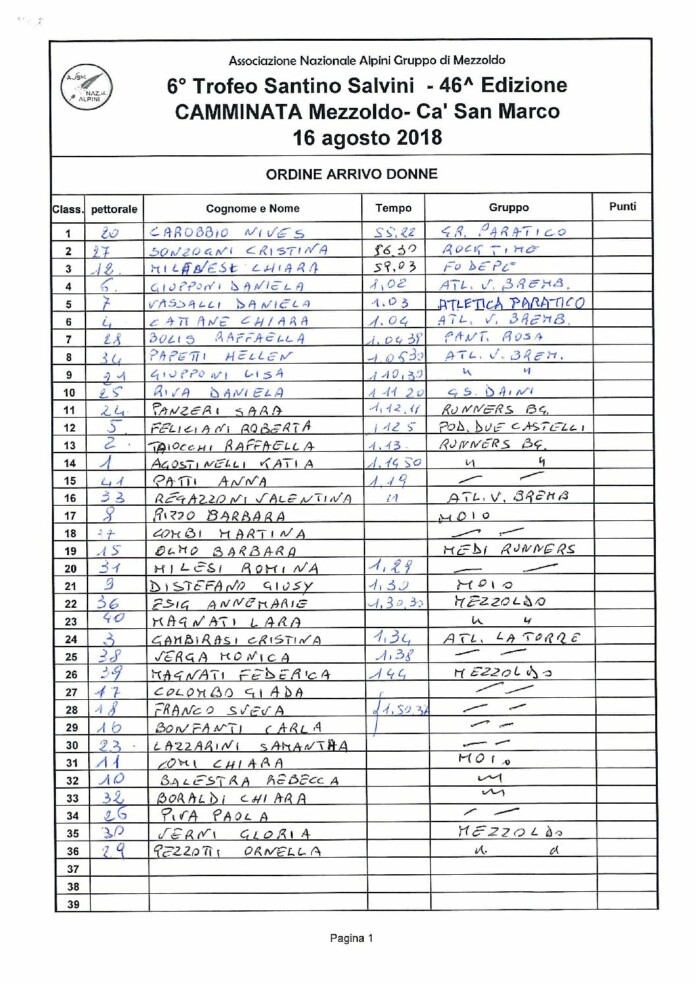 A.N.A. NAZ.LE ALPINI
Associazione Nazionale Alpini Gruppo di Mezzoldo
6° Trofeo Santino Salvini - 46^ Edizione
CAMMINATA Mezzoldo- Ca' San Marco
16 agosto 2018
ORDINE ARRIVO DONNE
Class. pettorale Cognome e Nome Tempo Gruppo Punti
1 20 CAROBBIO NIVES 55,22 GR. PARATICO
2 27 SONZOGNI CRISTINA 56.30 ROCK TIME
3 12. MILANESE CHIARA 59.03 FO DI PE
4 6. GIUPPONI DANIELA 1,02 ATL. V. BREMB.
5 7 VASSALLI DANIELA 1.03 ATLETICA PARATICO
6 4 CATTANE CHIARA 1.04 ATL. V. BREMB.
7 28 BOLIS RAFFAELLA 1.0438 PANT. ROSA
8 34 PAPETTI HELLEN 1.0530 ATL. V. BREM.
9 21 GIUPPONI LISA 110,30 " "
10 25 RIVA DANIELA 1 11 20 GS. DAINI
11 24. PANZERI SARA 1,12,11 RUNNERS BG.
12 5. FELICIANI ROBERTA 1 12 5 POD. DUE CASTELLI
13 2. TAIOCCHI RAFFAELLA 1,13. RUNNERS BG.
14 1 AGOSTINELLI KATIA 1,1450 " "
15 41 PATTI ANNA 1,19 — —
16 33 REGAZZONI VALENTINA " ATL. V. BREMB
17 8 RIZZO BARBARA MOIO
18 37 COMBI MARTINA — —
19 15 OLMO BARBARA MEDI RUNNERS
20 31 MILESI ROMINA 1,29 — —
21 9 DISTEFANO GIUSY 1,30 MOIO
22 36 ESIG ANNEMARIE 1,30,30 MEZZOLDO
23 40 MAGNATI LARA " "
24 3 GAMBIRASI CRISTINA 1,34 ATL. LA TORRE
25 38 VERGA MONICA 1,38 — —
26 39 MAGNATI FEDERICA 144 MEZZOLDO
27 17 COLOMBO GIADA — —
28 18 FRANCO SVEVA 1,50.31 — —
29 16 BONFANTI CARLA — —
30 23. LAZZARINI SAMANTHA — —
31 11 COMI CHIARA MOIO
32 10 BALESTRA REBECCA "
33 32 BORALDI CHIARA "
34 26 PIVA PAOLA — —
35 30 VERNI GLORIA MEZZOLDO
36 29 PEZZOTTI ORNELLA " "
37
38
39
Pagina 1